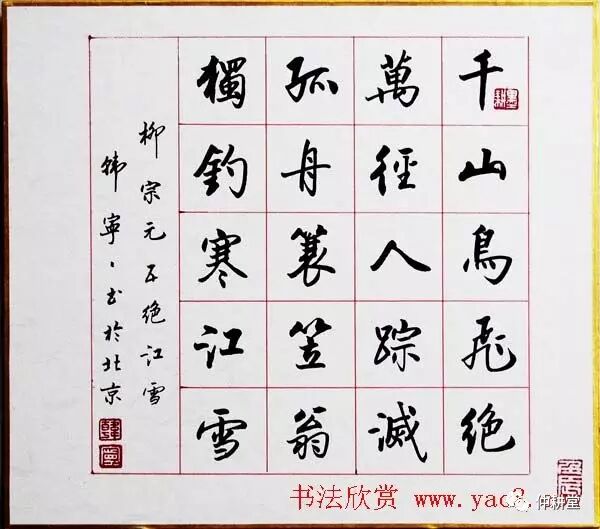 千山鳥飛絶
萬徑人踪滅
孤舟蓑笠翁
獨釣寒江雪
柳宗元五绝江雪
韩寧、书於北京
书法欣赏 www.yac8.
仲耕堂